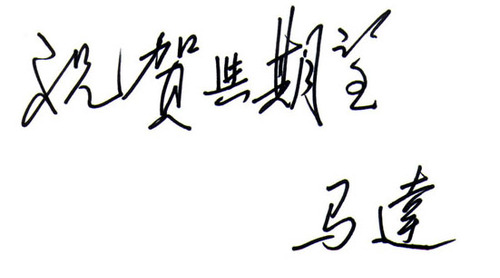 祝贺与期望
马达